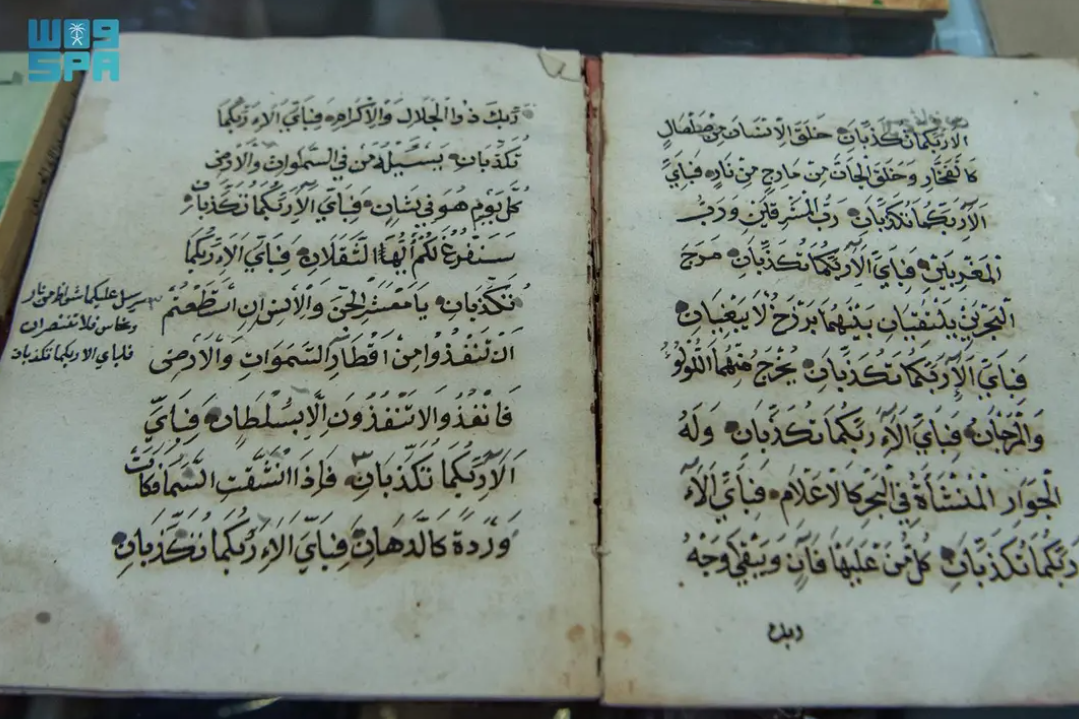 الاء ربكما تكذبان خلق الانسان من صلصال
كالفخار وخلق الجان من مارج من نار فباي
الآء ربكما تكذبان رب المشرقين ورب
المغربين فباي الآء ربكما تكذبان مرج
البحرين يلتقيان بينهما برزخ لا يبغيان
فباي الآء ربكما تكذبان يخرج منهما اللولؤ
والمرجان فباي الآء ربكما تكذبان وله
الجوار المنشأة في البحر كالاعلام فباي الآء
ربكما تكذبان كل من عليها فان ويبقى وجه
ربك
ربك ذوا الجلال والاكرام فباي الاء ربكما
تكذبان يسئله من في السموات والارض
كل يوم هو في شان فباي الآء ربكما تكذبان
سنفرغ لكم أيها الثقلان فباي الاء ربكما
تكذبان يا معشر الجن والانس ان استطعتم
ان تنفذوا من اقطار السموات والارض
فانفذوا لا تنفذون الا بسلطان فباي
الاء ربكما تكذبان فاذا انشقت السما فكانت
وردة كالدهان فباي الاء ربكما تكذبان
يرسل عليكما شواظ من نار
ونحاس فلا تنتصران
فباي الاء ربكما تكذبان
واس
SPA